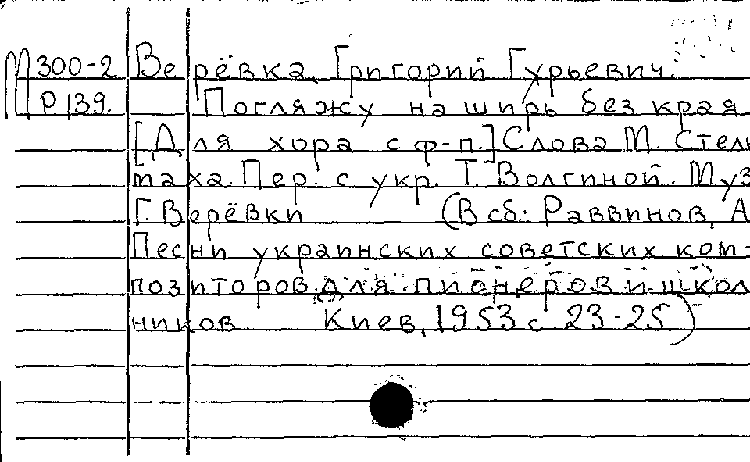 М 300-2 Верёвка, Григорий Гурьевич.
Р 139. Погляжу на ширь без края
[Для хора с ф-п.] Слова М. Стель
маха. Пер. с укр. Т. Волгиной. Муз
Г. Верёвки (В сб: Раввинов, А
Песни украинских советских ком-
позиторов для пионеров и школ
ников Киев, 1953 с 23-25)